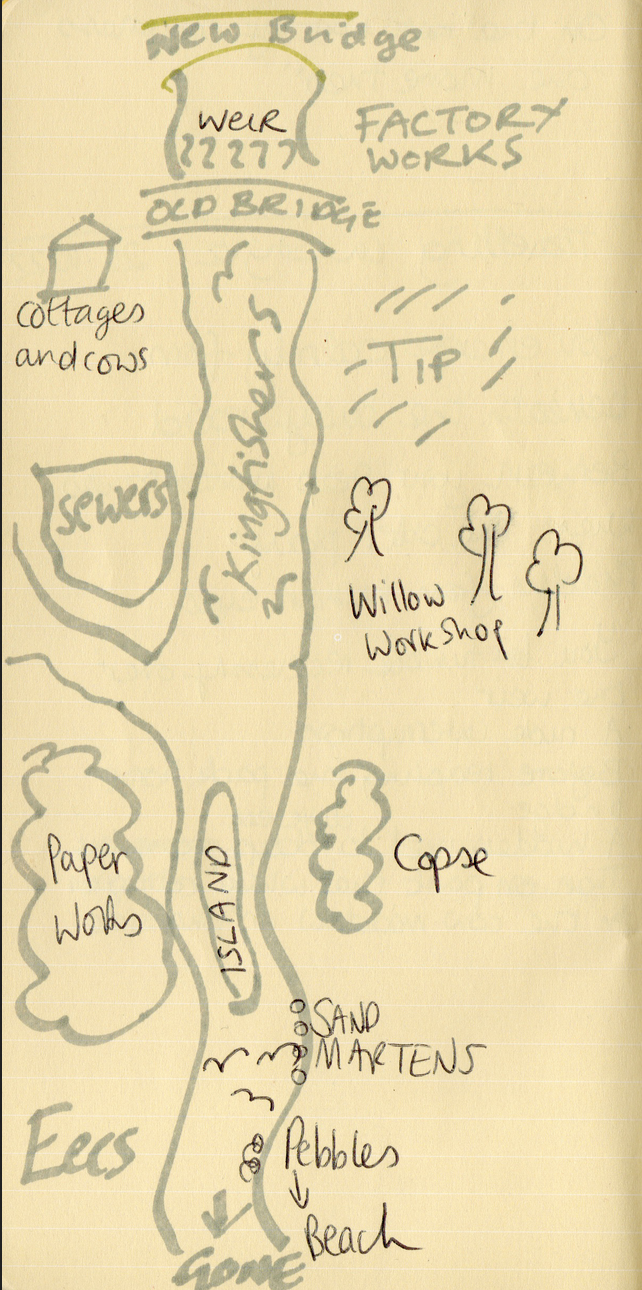 New Bridge
weir
FACTORY
WORKS
OLD BRIDGE
cottages
and cows
TIP
Kingfishers
sewers
Willow
Workshop
Paper
Works
ISLAND
Copse
SAND
MARTENS
Eels
Pebbles
Beach
GONE